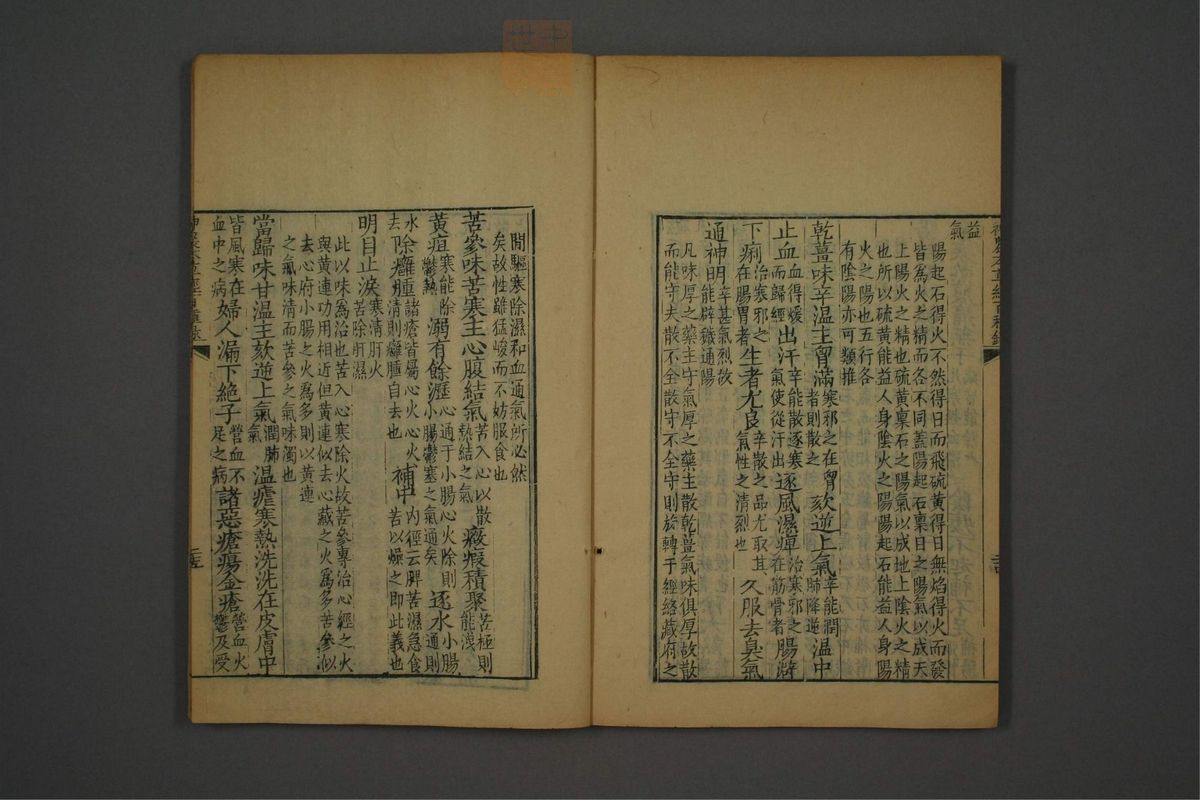 益
氣
陽起石得火不然得日而飛硫黃得日無焰得火而發
皆為火之精而各不同蓋陽起石稟日之陽氣以成天
上陽火之精也硫黃稟石之陽氣以成地上陰火之精
也所以硫黃能益人身陰火之陽陽起石能益人身陽
火之陽也五行各
有陰陽亦可類推
乾薑味辛温主胷滿寒邪之在胷者則散之欬逆上氣辛能潤肺降逆温中
止血血得煖而歸經出汗辛能散逐寒氣使從汗出逐風濕痺治寒邪之在筋骨者腸澼
下痢治寒邪之在腸胃者生者尤良辛散之品尤取其氣性之清烈也久服去臭氣
通神明辛甚氣烈故能辟穢通陽
凡味厚之藥主守氣厚之藥主散乾薑氣味俱厚故散
而能守夫散不全散守不全守則旋轉于經絡藏府之
間驅寒除濕和血通氣所必然
矣故性雖猛峻而不妨服食也
苦參味苦寒主心腹結氣苦入心以散熱結之氣癥瘕積聚苦極則能洩
黃疸寒能除鬱熱溺有餘瀝心通于小腸心火除則小腸鬱塞之氣通矣逐水小腸通則
水去除癰腫諸瘡皆屬心火心火清則癰腫自去也補中內經云脾苦濕急食苦以燥之即此義也
明目止淚寒清肝火苦除肝濕
此以味為治也苦入心寒除火故苦參專治心經之火
與黃連功用相近但黃連似去心藏之火為多苦參似
去心府小腸之火為多則以黃連
之氣味清而苦參之氣味濁也
當歸味甘温主欬逆上氣潤肺氣温瘧寒熱洗洗在皮膚中
皆風寒在血中之病婦人漏下絶子營血不足之病諸惡瘡瘍金瘡營血火鬱及受